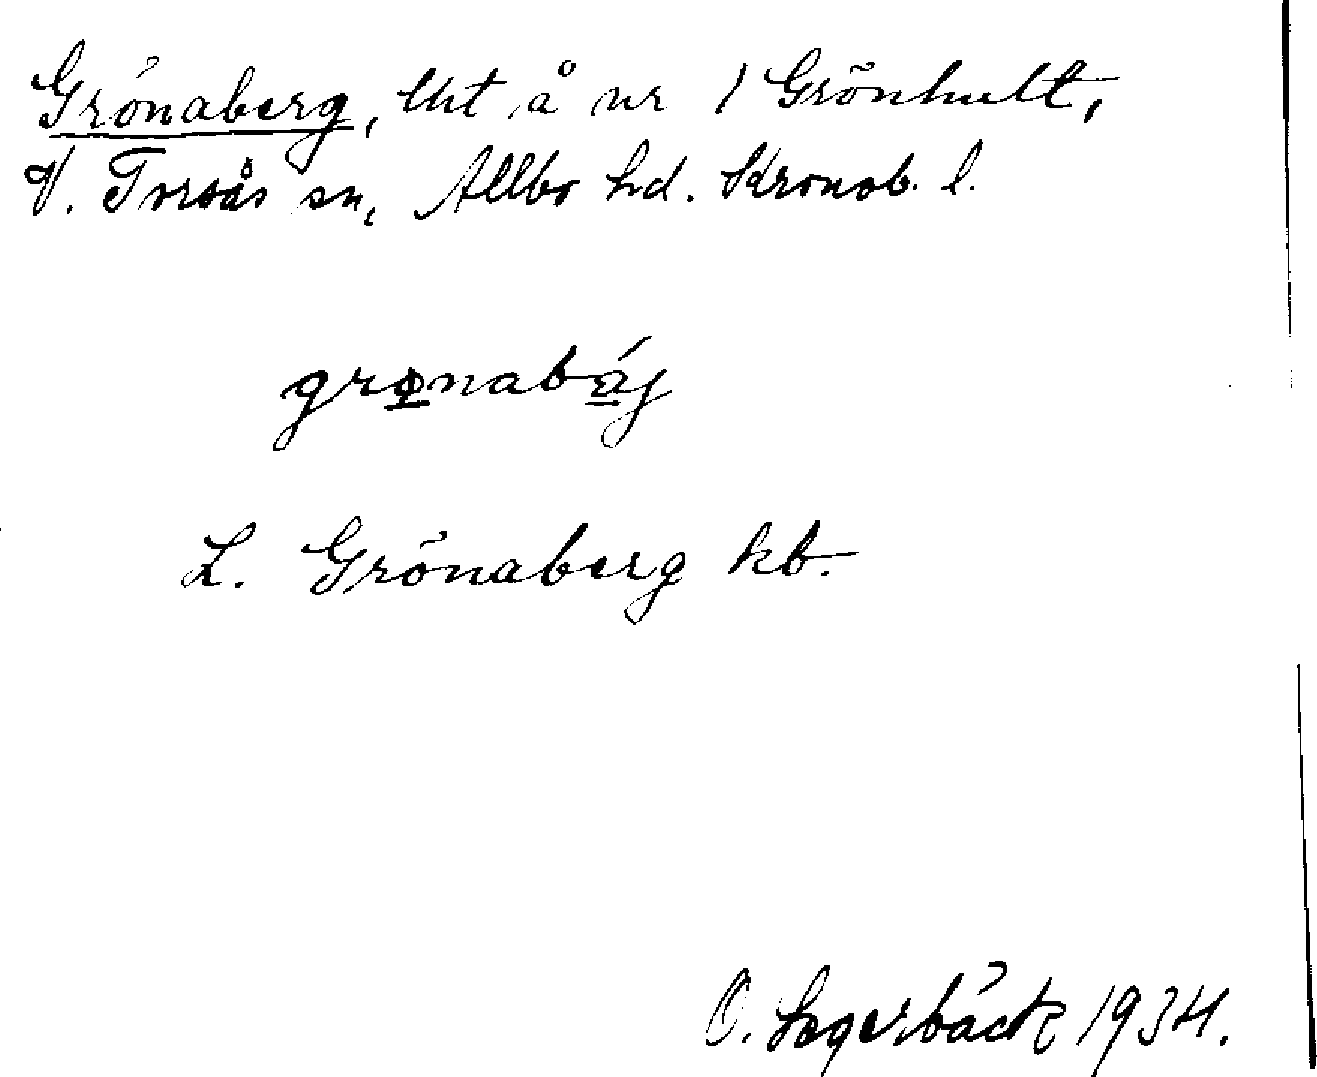 Grönaberg, lht å nr 1 Grönhult,
V. Torsås sn, Allbo hd. Kronob. l.
grø̲nabá̲j
L. Grönaberg kb.
O. Segerbäck 1934.